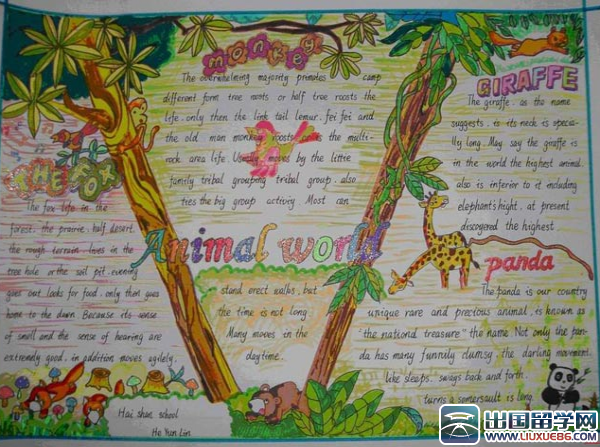 monkey
The overwhelming majority primates camp
different form tree roots or half tree roosts the
life, only then the link tail lemur, fei fei and
the old man monkey roosts the multi-
rock area life. Usually moves by the little
family tribal grouping tribal group. also
ties the big group activiy Most can
stand erect walks, but
the time is not long
Many moves in the
daytime.
Animal world
THE FOX
The fox life in the
forest. the prairie, half desert.
the rough terrain lives in the
tree hole or the soil pit, evening
goes out looks for food, only then goes
home to the dawn Because its sense
of smell and the sense of hearing are
extremely good, in addition moves agilely.
Hai shan school
He Yun Lin
GIRAFFE
The giraffe, as the name
suggests, is its neck is specia-
lly long. May say the giraffe is
in the world the highest animal.
also is inferior to it including
elephant's hight. at present
discogered the highest
panda
The panda is our country
unique rare and precious animal, is known as
"the national treasure" the name. Not only the pan-
da has many funnily clumsy, the darling movement.
like sleeps, sways back and forth.
turns a somersault is long.
出国留学网
WWW.LIUXUE86.COM